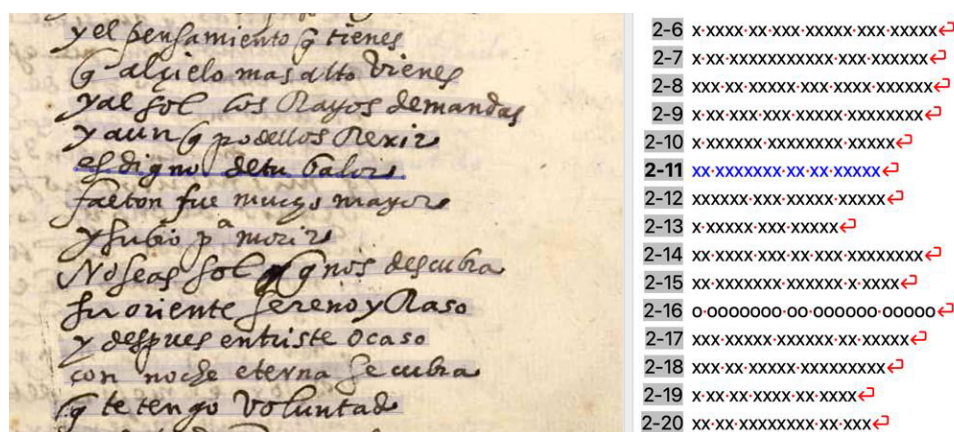 y el pensamiento q̃ tienes
q̃ al çielo mas alto vienes
y al sol los Rayos demandas
y aun q̃ podellos Rexir
es digno de tu balor
faeton fue mucho mayor
y subio pª morir
No seas sol q̃ nos descubra
su oriente sereno y Raso
y despues en triste ocaso
con noche eterna se cubra
q̃ te tengo voluntad
2-6 x·xxxx·xx·xxx·xxxxx·xxx·xxxxx
2-7 x·xx·xxxxxxxxxxx·xxx·xxxxxx
2-8 xxx·xx·xxxxx·xxx·xxxx·xxxxxx
2-9 x·xxx·xxxx·xxx·xxxxx·xxxxxxxx
2-10 x·xxxxxx·xxxxxxxx·xxxxx
2-11 xx·xxxxxxx·xx·xx·xxxxx
2-12 xxxxxx·xxx·xxxxx·xxxxx
2-13 x·xxxxx·xxx·xxxxx
2-14 xx·xxxx·xxx·xx·xxx·xxxxxxxx
2-15 xx·xxxxxxx·xxxxxx·x·xxxx
2-16 o·ooooooo·oo·oooooo·ooooo
2-17 xxx·xxxxx·xxxxxx·xx·xxxxx
2-18 xxx·xx·xxxxx·xxxxxxxxx
2-19 x·xx·xx·xxxx·xx·xxxx
2-20 xx·xx·xxxxxxxx·xx·xxx